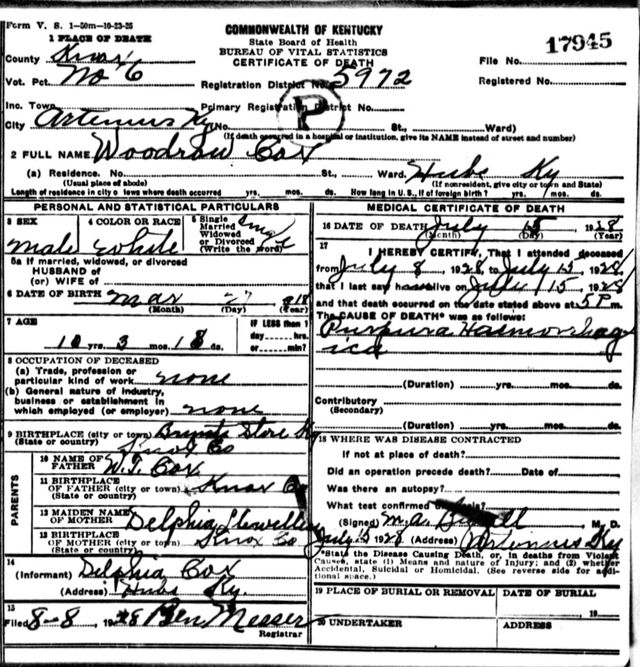 Form V. S. 1-50m-10-23-25
COMMONWEALTH OF KENTUCKY
State Board of Health
BUREAU OF VITAL STATISTICS
CERTIFICATE OF DEATH
17945
1 PLACE OF DEATH
County Knox
File No.
Vot. Pct. No 6
Registration District No. 5972
Registered No.
Inc. Town
Primary Registration District No.
P
City Artemus Ky No. St., Ward)
(If death occurred in a hospital or institution, give its NAME instead of street and number)
2 FULL NAME Woodrow Cox
(a) Residence. No. St., Ward. Hubs Ky
(Usual place of abode) (If nonresident, give city or town and State)
Length of residence in city or town where death occurred yrs. mos. ds. How long in U. S., if of foreign birth? yrs. mos. ds.
PERSONAL AND STATISTICAL PARTICULARS
3 SEX
male
4 COLOR OR RACE
white
5 Single
Married
Widowed
or Divorced
(Write the word)
Single
5a If married, widowed, or divorced
HUSBAND of
(or) WIFE of
6 DATE OF BIRTH mar 27 918
(Month) (Day) (Year)
7 AGE
10 yrs. 3 mos. 18 ds.
IF LESS than 1
day hrs.
or min.?
8 OCCUPATION OF DECEASED
(a) Trade, profession or
particular kind of work none
(b) General nature of industry,
business or establishment in
which employed (or employer) none
9 BIRTHPLACE (city or town) Store Ky
(State or country) Knox Co
PARENTS
10 NAME OF
FATHER W. T. Cox
11 BIRTHPLACE
OF FATHER (city or town) Knox Co
(State or country)
12 MAIDEN NAME
OF MOTHER Delphia Llewellen
13 BIRTHPLACE
OF MOTHER (city or town) Knox Co
(State or country)
14
(Informant) Delphia Cox
(Address) Hubs Ky.
15
Filed 8-8 1928 Ben Messer
Registrar
MEDICAL CERTIFICATE OF DEATH
16 DATE OF DEATH July 15 1928
(Month) (Day) (Year)
17
I HEREBY CERTIFY, That I attended deceased
from July 8 1928 to July 15 1928
that I last saw h alive on July 15 1928
and that death occurred on the date stated above at 5 P m.
The CAUSE OF DEATH* was as follows:
Purpura Haemorrhag
ica
(Duration) yrs. mos. ds.
Contributory
(Secondary)
(Duration) yrs. mos. ds.
18 WHERE WAS DISEASE CONTRACTED
If not at place of death?
Did an operation precede death? Date of
Was there an autopsy?
What test confirmed
(Signed) M. A. M. D.
July 1928 (Address) Artemus Ky
*State the Disease Causing Death, or, in deaths from Violent
Causes, state (1) Means and nature of Injury; and (2) whether
Accidental, Suicidal or Homicidal. (See reverse side for addi-
tional space.)
19 PLACE OF BURIAL OR REMOVAL
DATE OF BURIAL
19
20 UNDERTAKER
ADDRESS